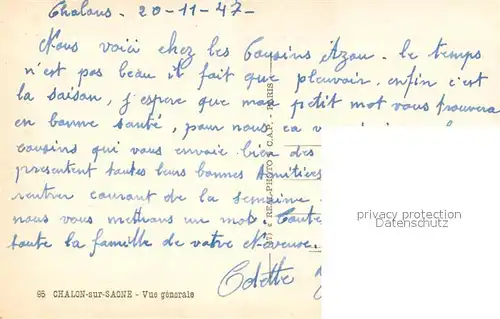 Chalons - 20-11-47-
Nous voici chez les Cousins Azou. le temps
n'est pas beau il fait que pleuvoir, enfin c'est
la saison, j'espere que mon petit mot vous trouvera
en bonne santé, pour nous ca v
cousins qui vous envoie bien des
presentent toutes leurs bonnes Amitiés
rentrer courant de la semaine
nous vous mettrons un mot. Toute
toute la famille de votre
Odette
privacy protection
Datenschutz
95 CHALON-sur-SAONE - Vue générale
REAL-PHOTO C.A.P. - PARIS